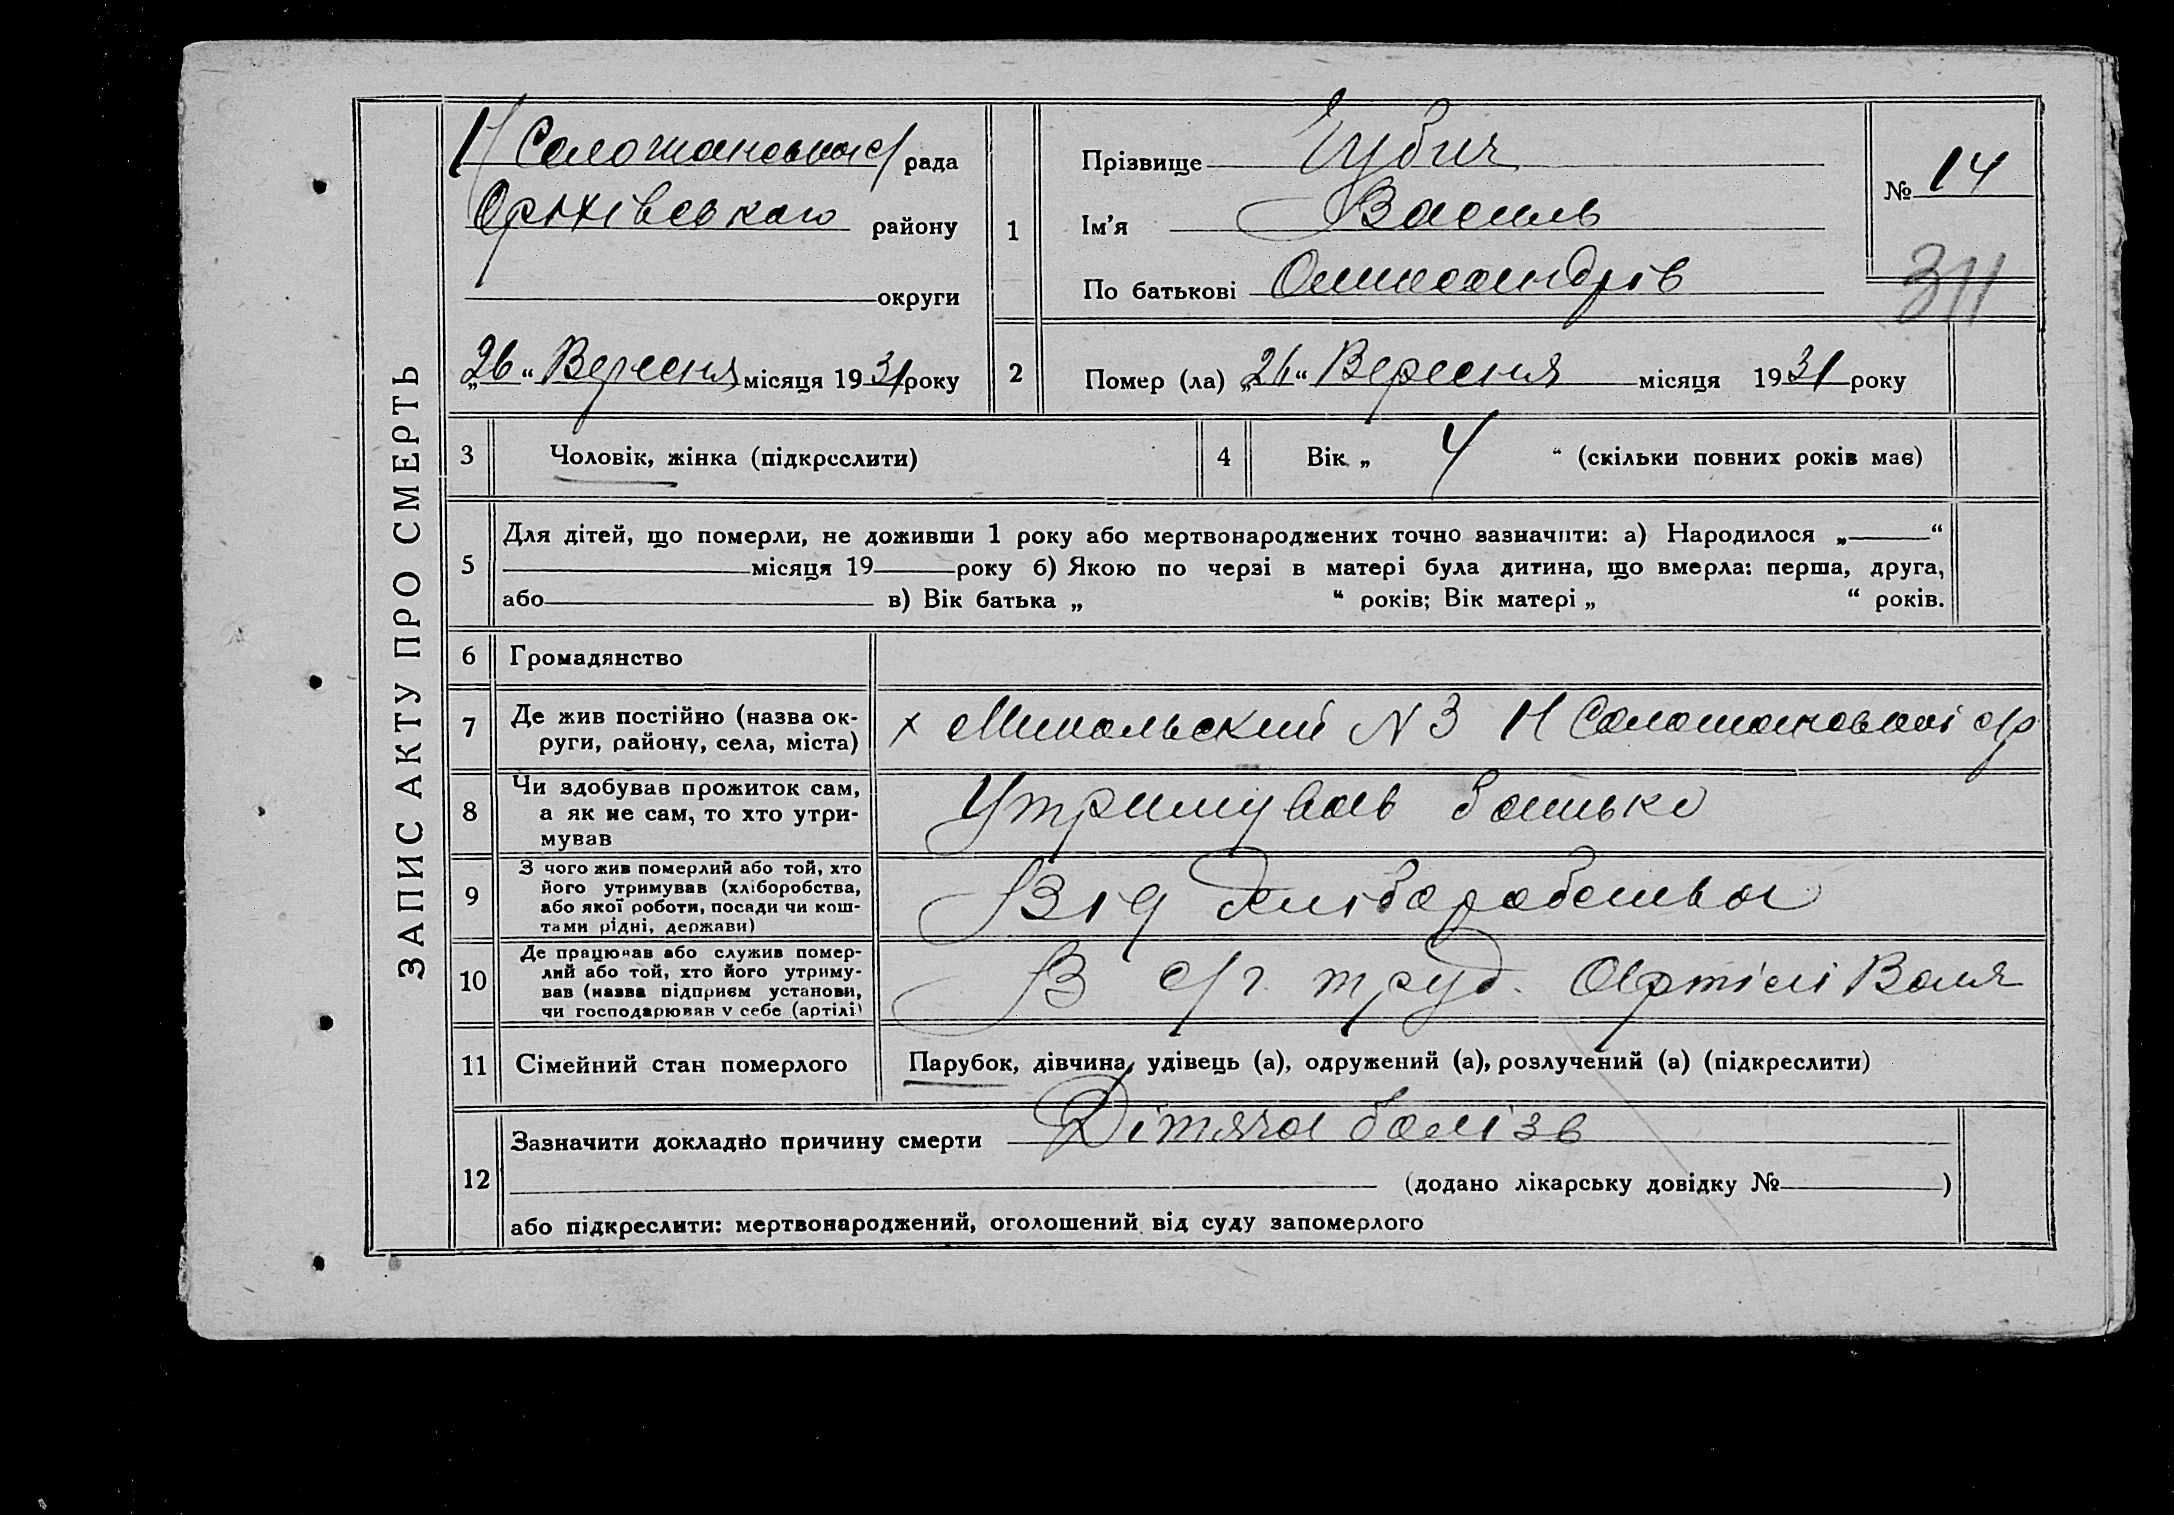 ЗАПИС АКТУ ПРО СМЕРТЬ
Н Соломанська с/рада
Оріхівського району
округи
„26“ Вересня місяця 1931 року
1
Прізвище Губич
Ім'я Василь
По батькові Олександрів
№ 14
311
2
Помер (ла) „26“ Вересня місяця 1931 року
3 Чоловік, жінка (підкреслити)
4 Вік „ 4 “ (скільки повних років має)
5 Для дітей, що померли, не доживши 1 року або мертвонароджених точно зазначити: а) Народилося „ “
місяця 19 року б) Якою по черзі в матері була дитина, що вмерла: перша, друга,
або в) Вік батька „ “ років; Вік матері „ “ років.
6 Громадянство
7 Де жив постійно (назва ок-
руги, району, села, міста)
х Микольский N 3 Н с/р
8 Чи здобував прожиток сам,
а як не сам, то хто утри-
мував
Утримував батько
9 З чого жив померлий або той, хто
його утримував (хліборобства,
або якої роботи, посади чи кош-
тами рідні, держави)
Від хліборобства
10 Де працював або служив помер-
лий або той, хто його утриму-
вав (назва підприєм установи,
чи господарював у себе (артілі)
В с/г. труд. Артілі Воля
11 Сімейний стан померлого
Парубок, дівчина, удівець (а), одружений (а), розлучений (а) (підкреслити)
12 Зазначити докладно причину смерти Дітяча болізь
(додано лікарську довідку № )
або підкреслити: мертвонароджений, оголошений від суду запомерлого